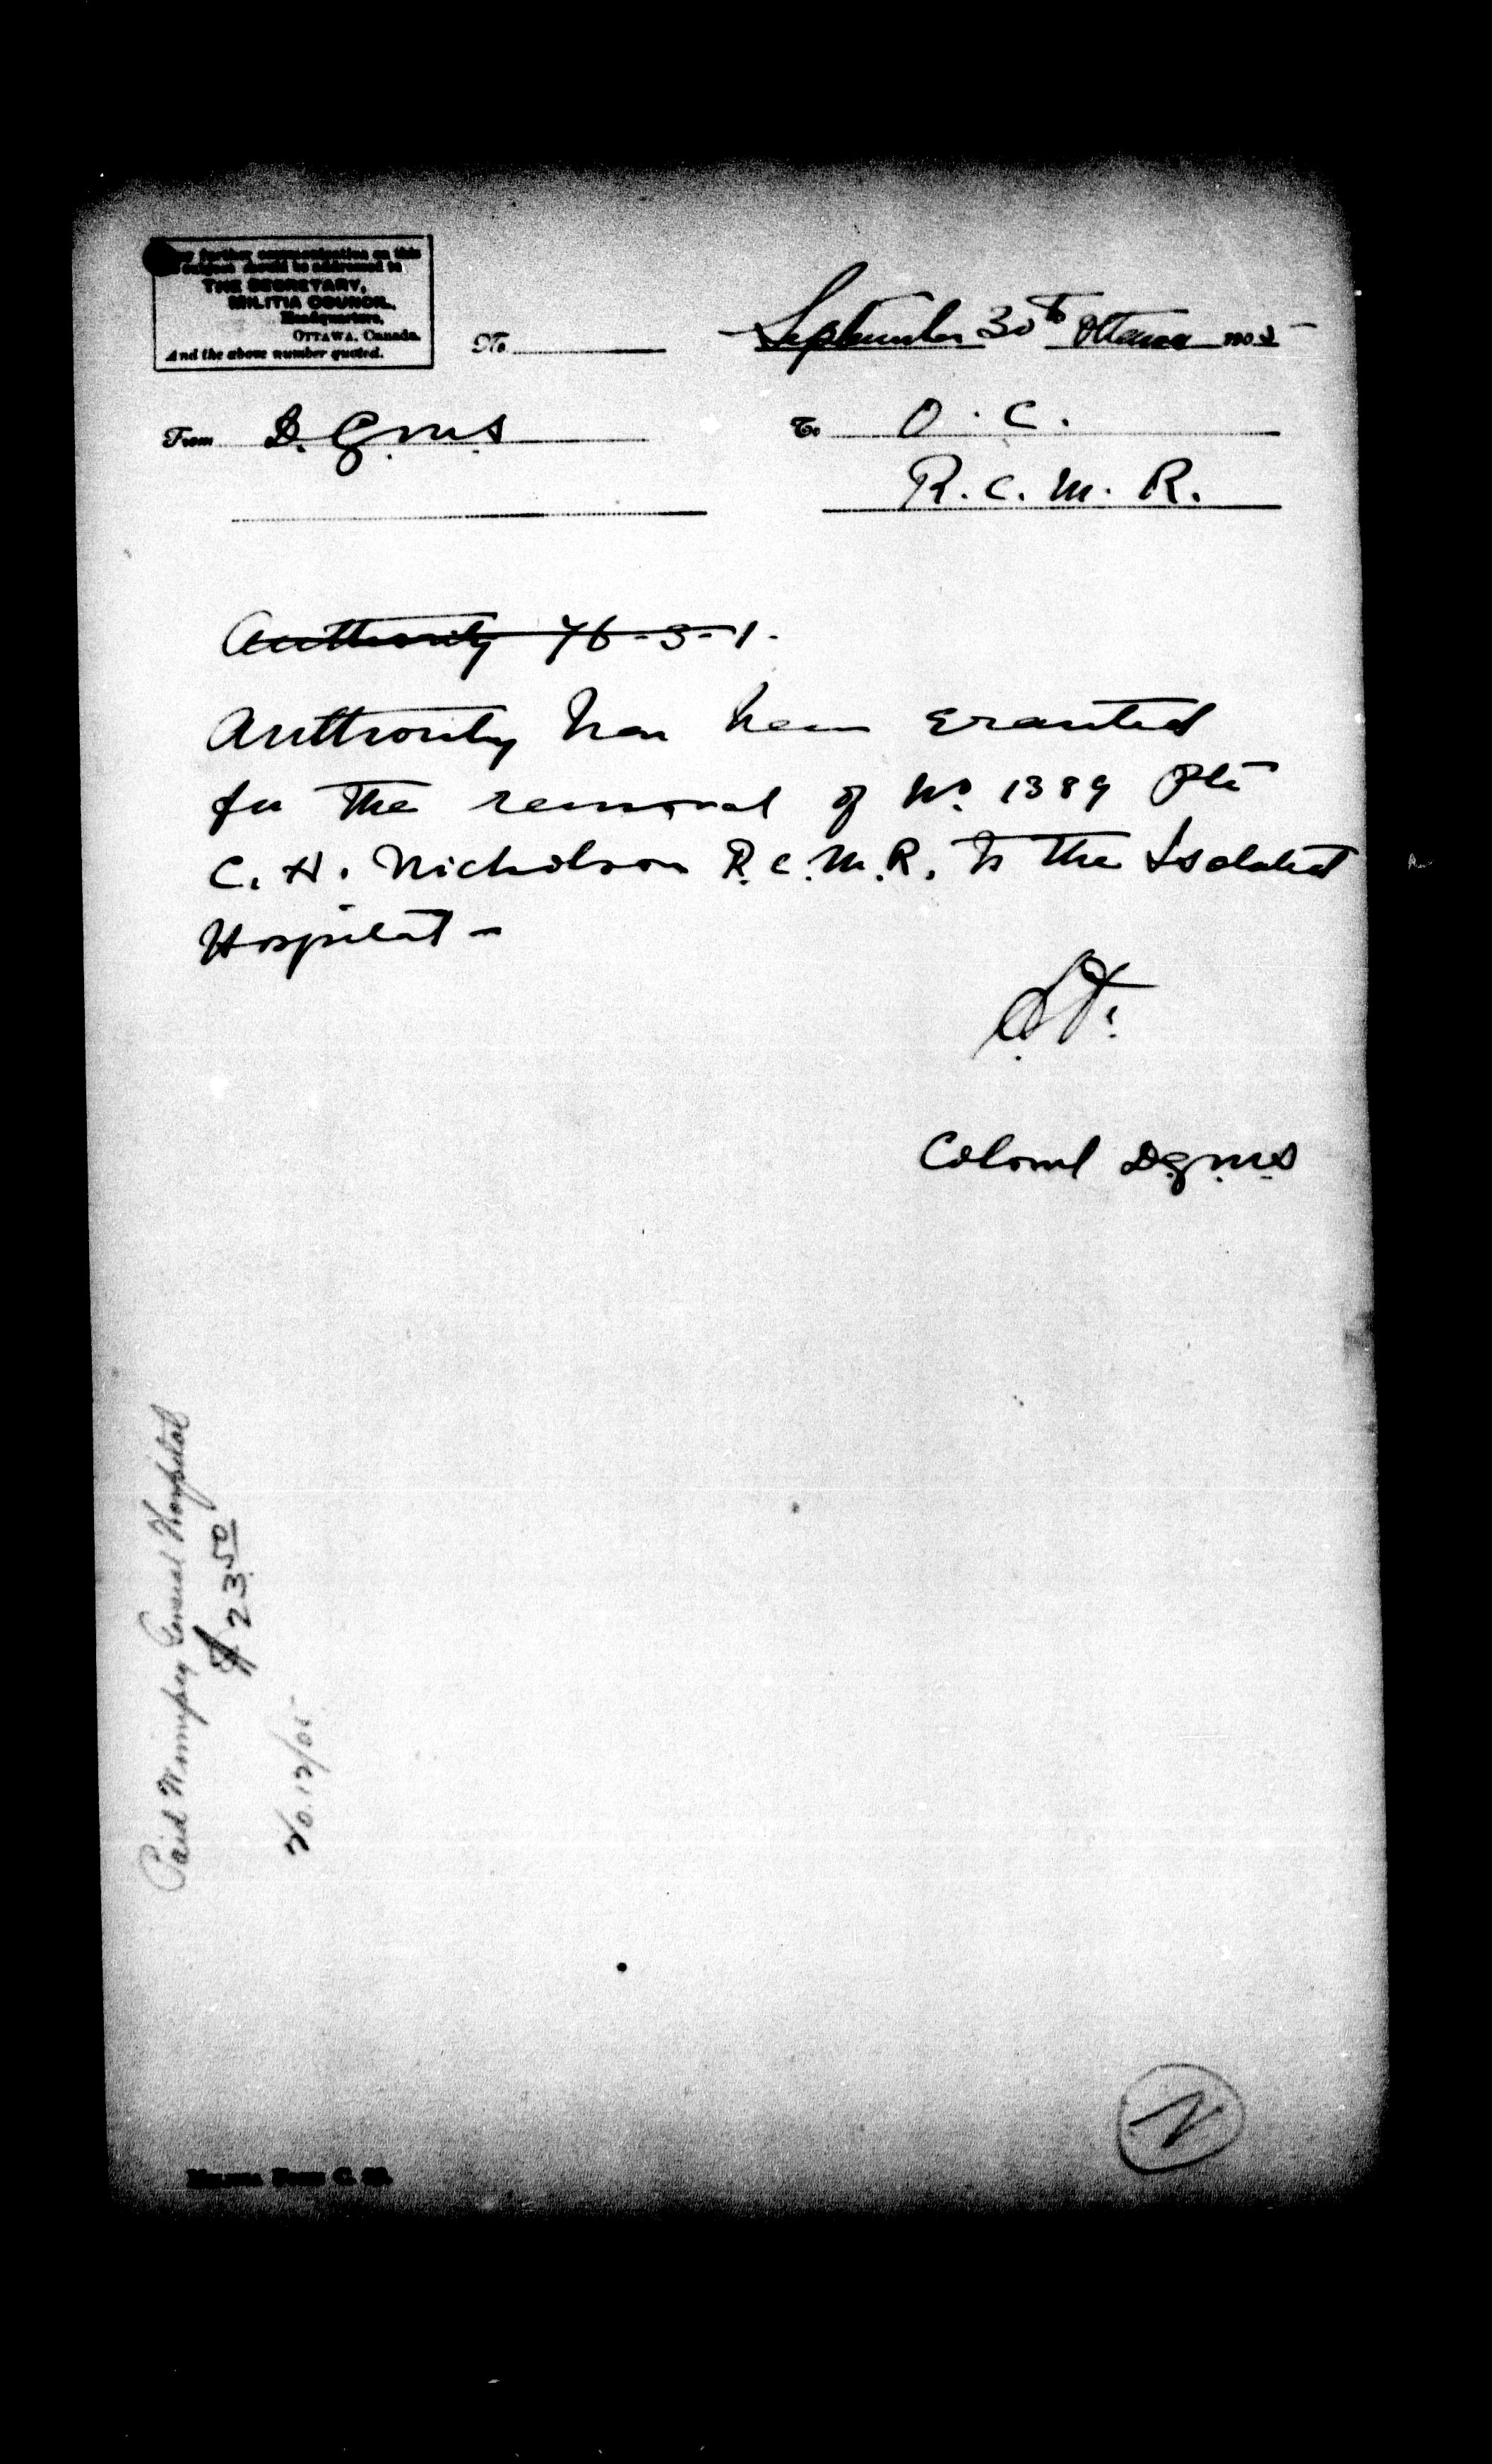 Any further communication on this
subject should be addressed to
THE SECRETARY,
MILITIA COUNCIL,
Headquarters,
OTTAWA, Canada.
And the above number quoted.
No.
September 30th Ottawa 1905
From D.G.M.S
To O.C.
R.C.M.R.
Authority 76-3-1.
Authority has been granted
for the removal of No. 1389 Pte
C. H. Nicholson R.C.M.R. to the Isolated
Hospital -
Colonel D.G.M.S
Paid Winnipeg General Hospital
$23.50
10.12/05
N
MILITIA FORM C.